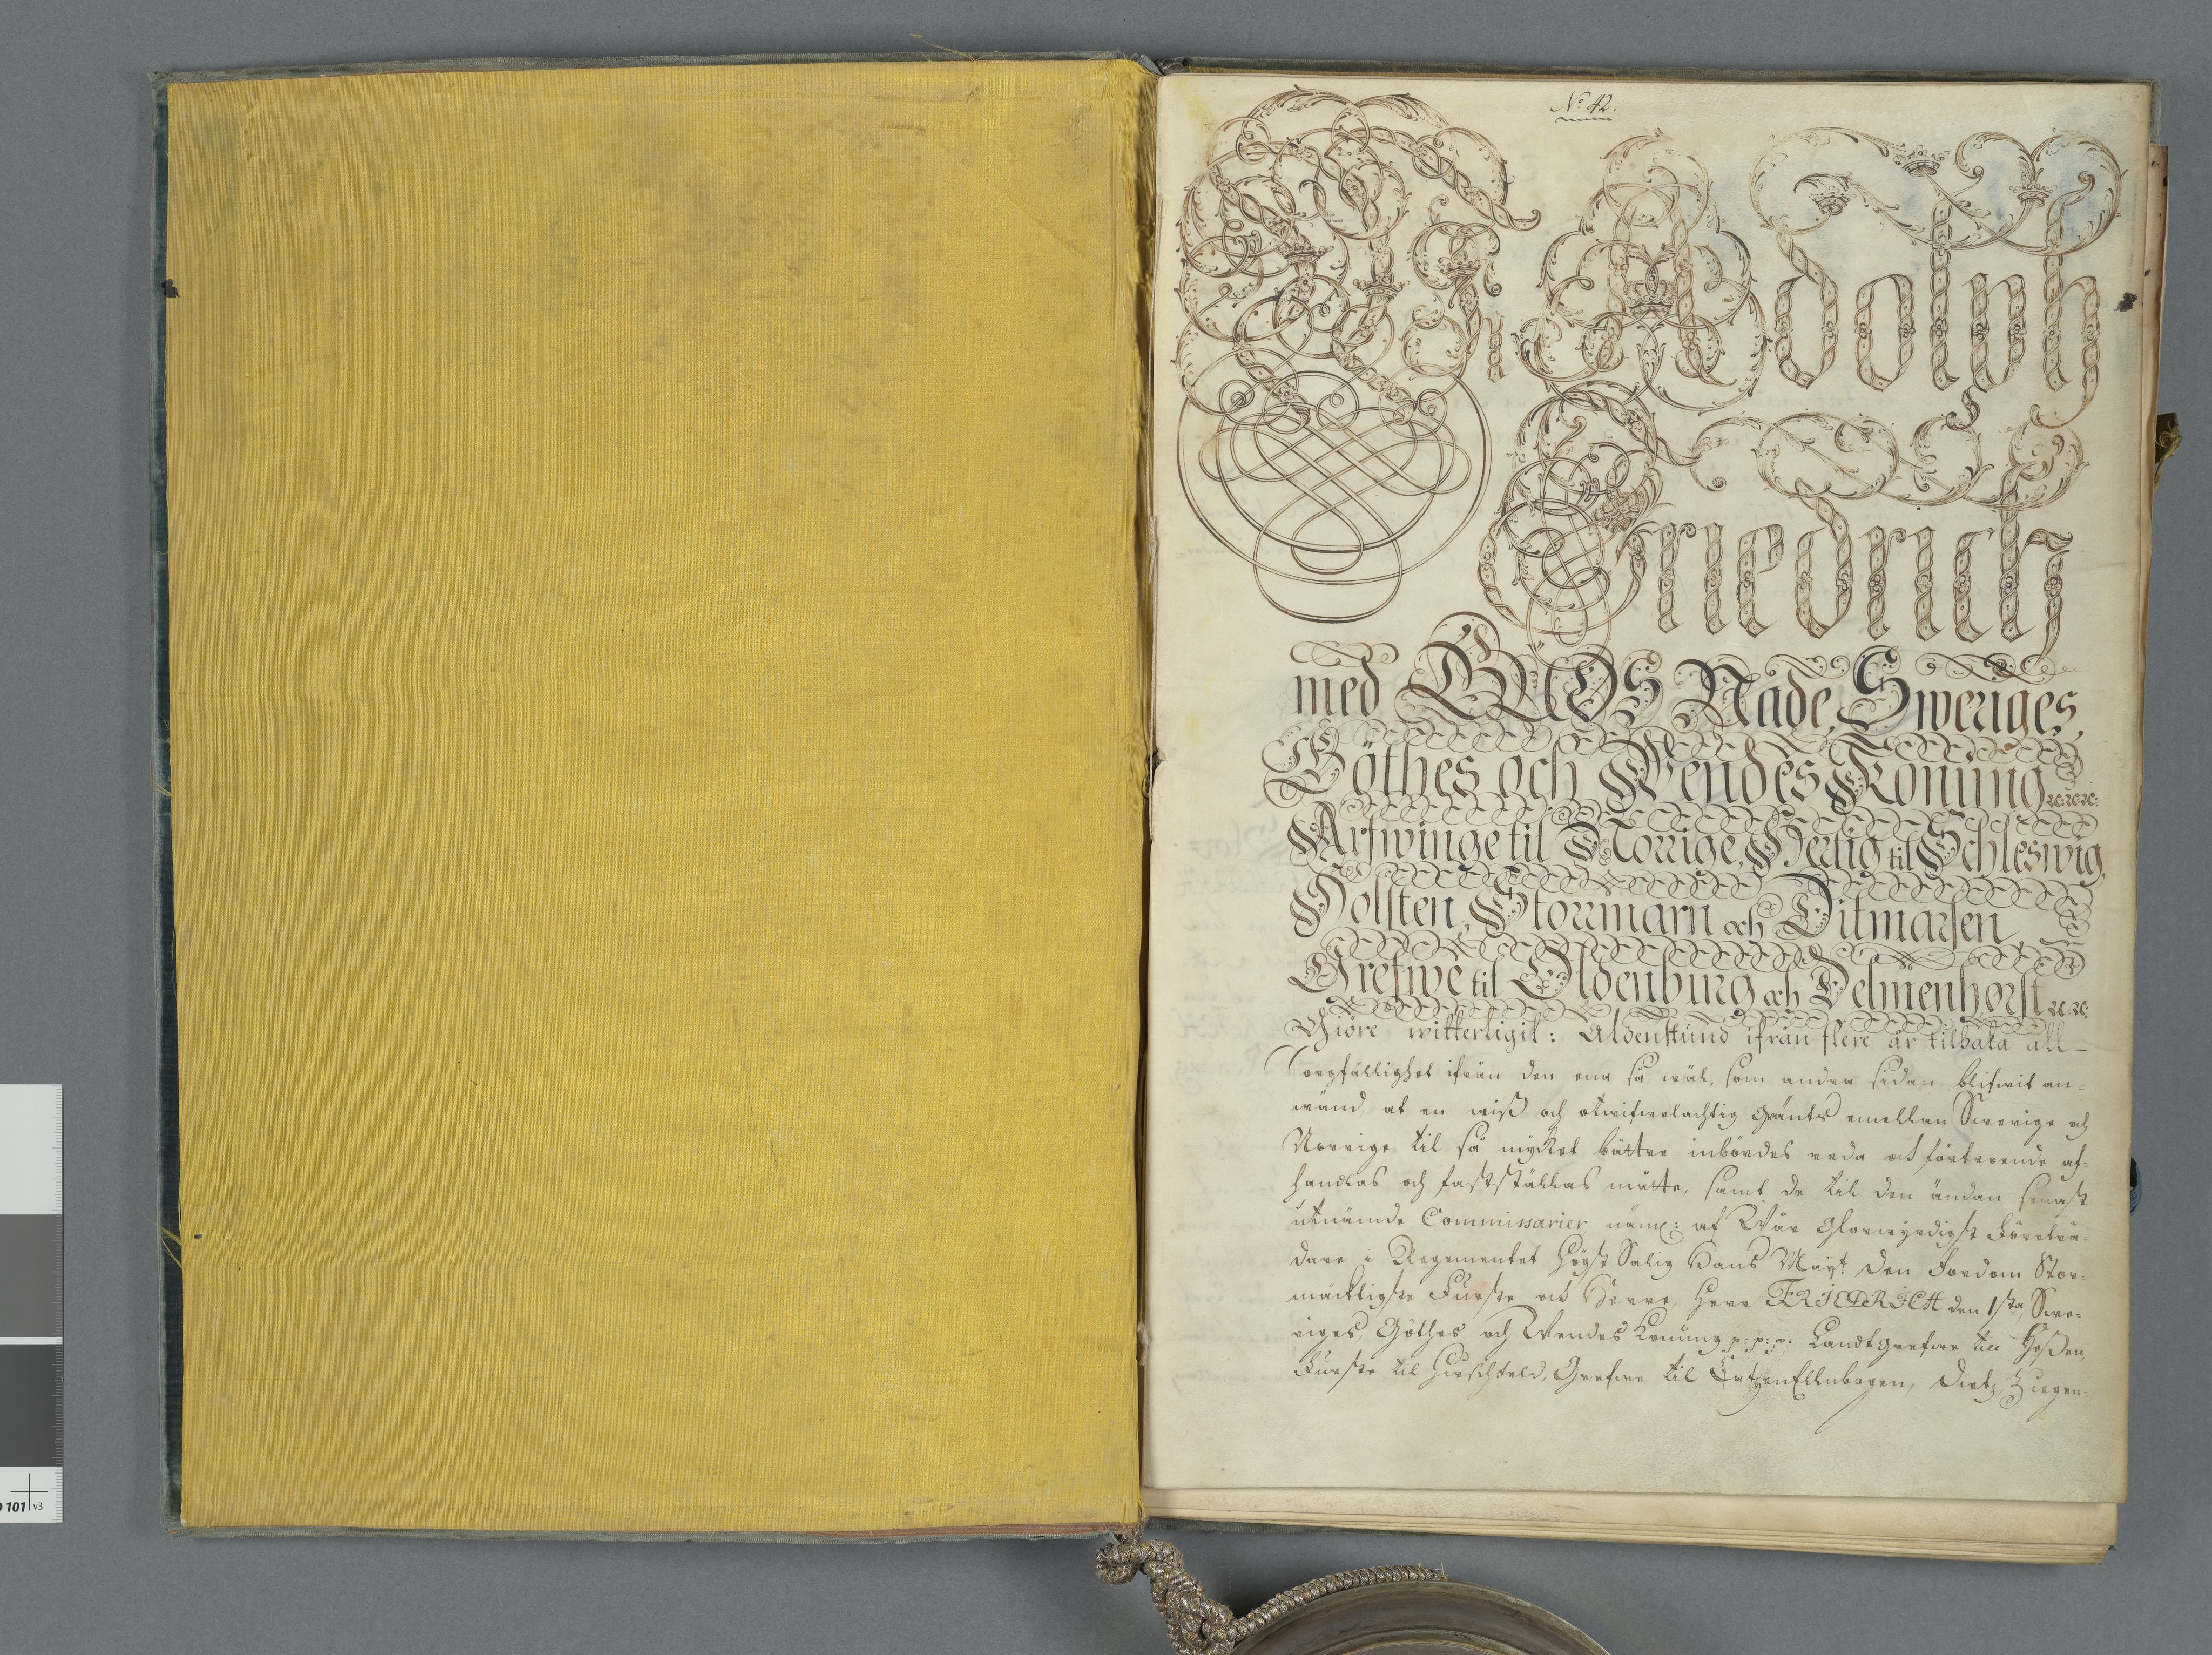 No. 42.
Wij Adolph
Friedrich
med GUDS Nåde, Sweriges,
Göthes och Wendes Konung ꝛc: ꝛc: ꝛc:
Arfwinge til Norrige, Hertig til Schleswig,
Holsten, Stormarn och Ditmarsen,
Grefwe til Oldenburg och Delmenhorst ꝛc: ꝛc:
Giöre witterligit: Aldenstund ifrån flere år tilbaka all-
sorgfällighet ifrån den ena så wäl, som andra sidan blifwit an=
wänd at en wiss och otwifwelachtig gränts emellan Swerige och
Norrige til så mycket bättre inbördes reda och förtroende af=
handlas och fastställas måtte, samt de til den ändan senast
utnämde Commissarier näml: af Wår Glorwyrdigst Företrä=
dare i Regementet Högst Salig Hans Mayt: Den Fordom Stor=
mäktigste Furste och Herre, Herr FRIEDRICH den 1sta, Swe=
riges, Göthes och Wendes Konung p: p: p: Landtgrefwe till Hessen,
Furste til Hirschfeld, Grefwe til CatzenEllnbogen, Dietz, Ziegen=
101 v3